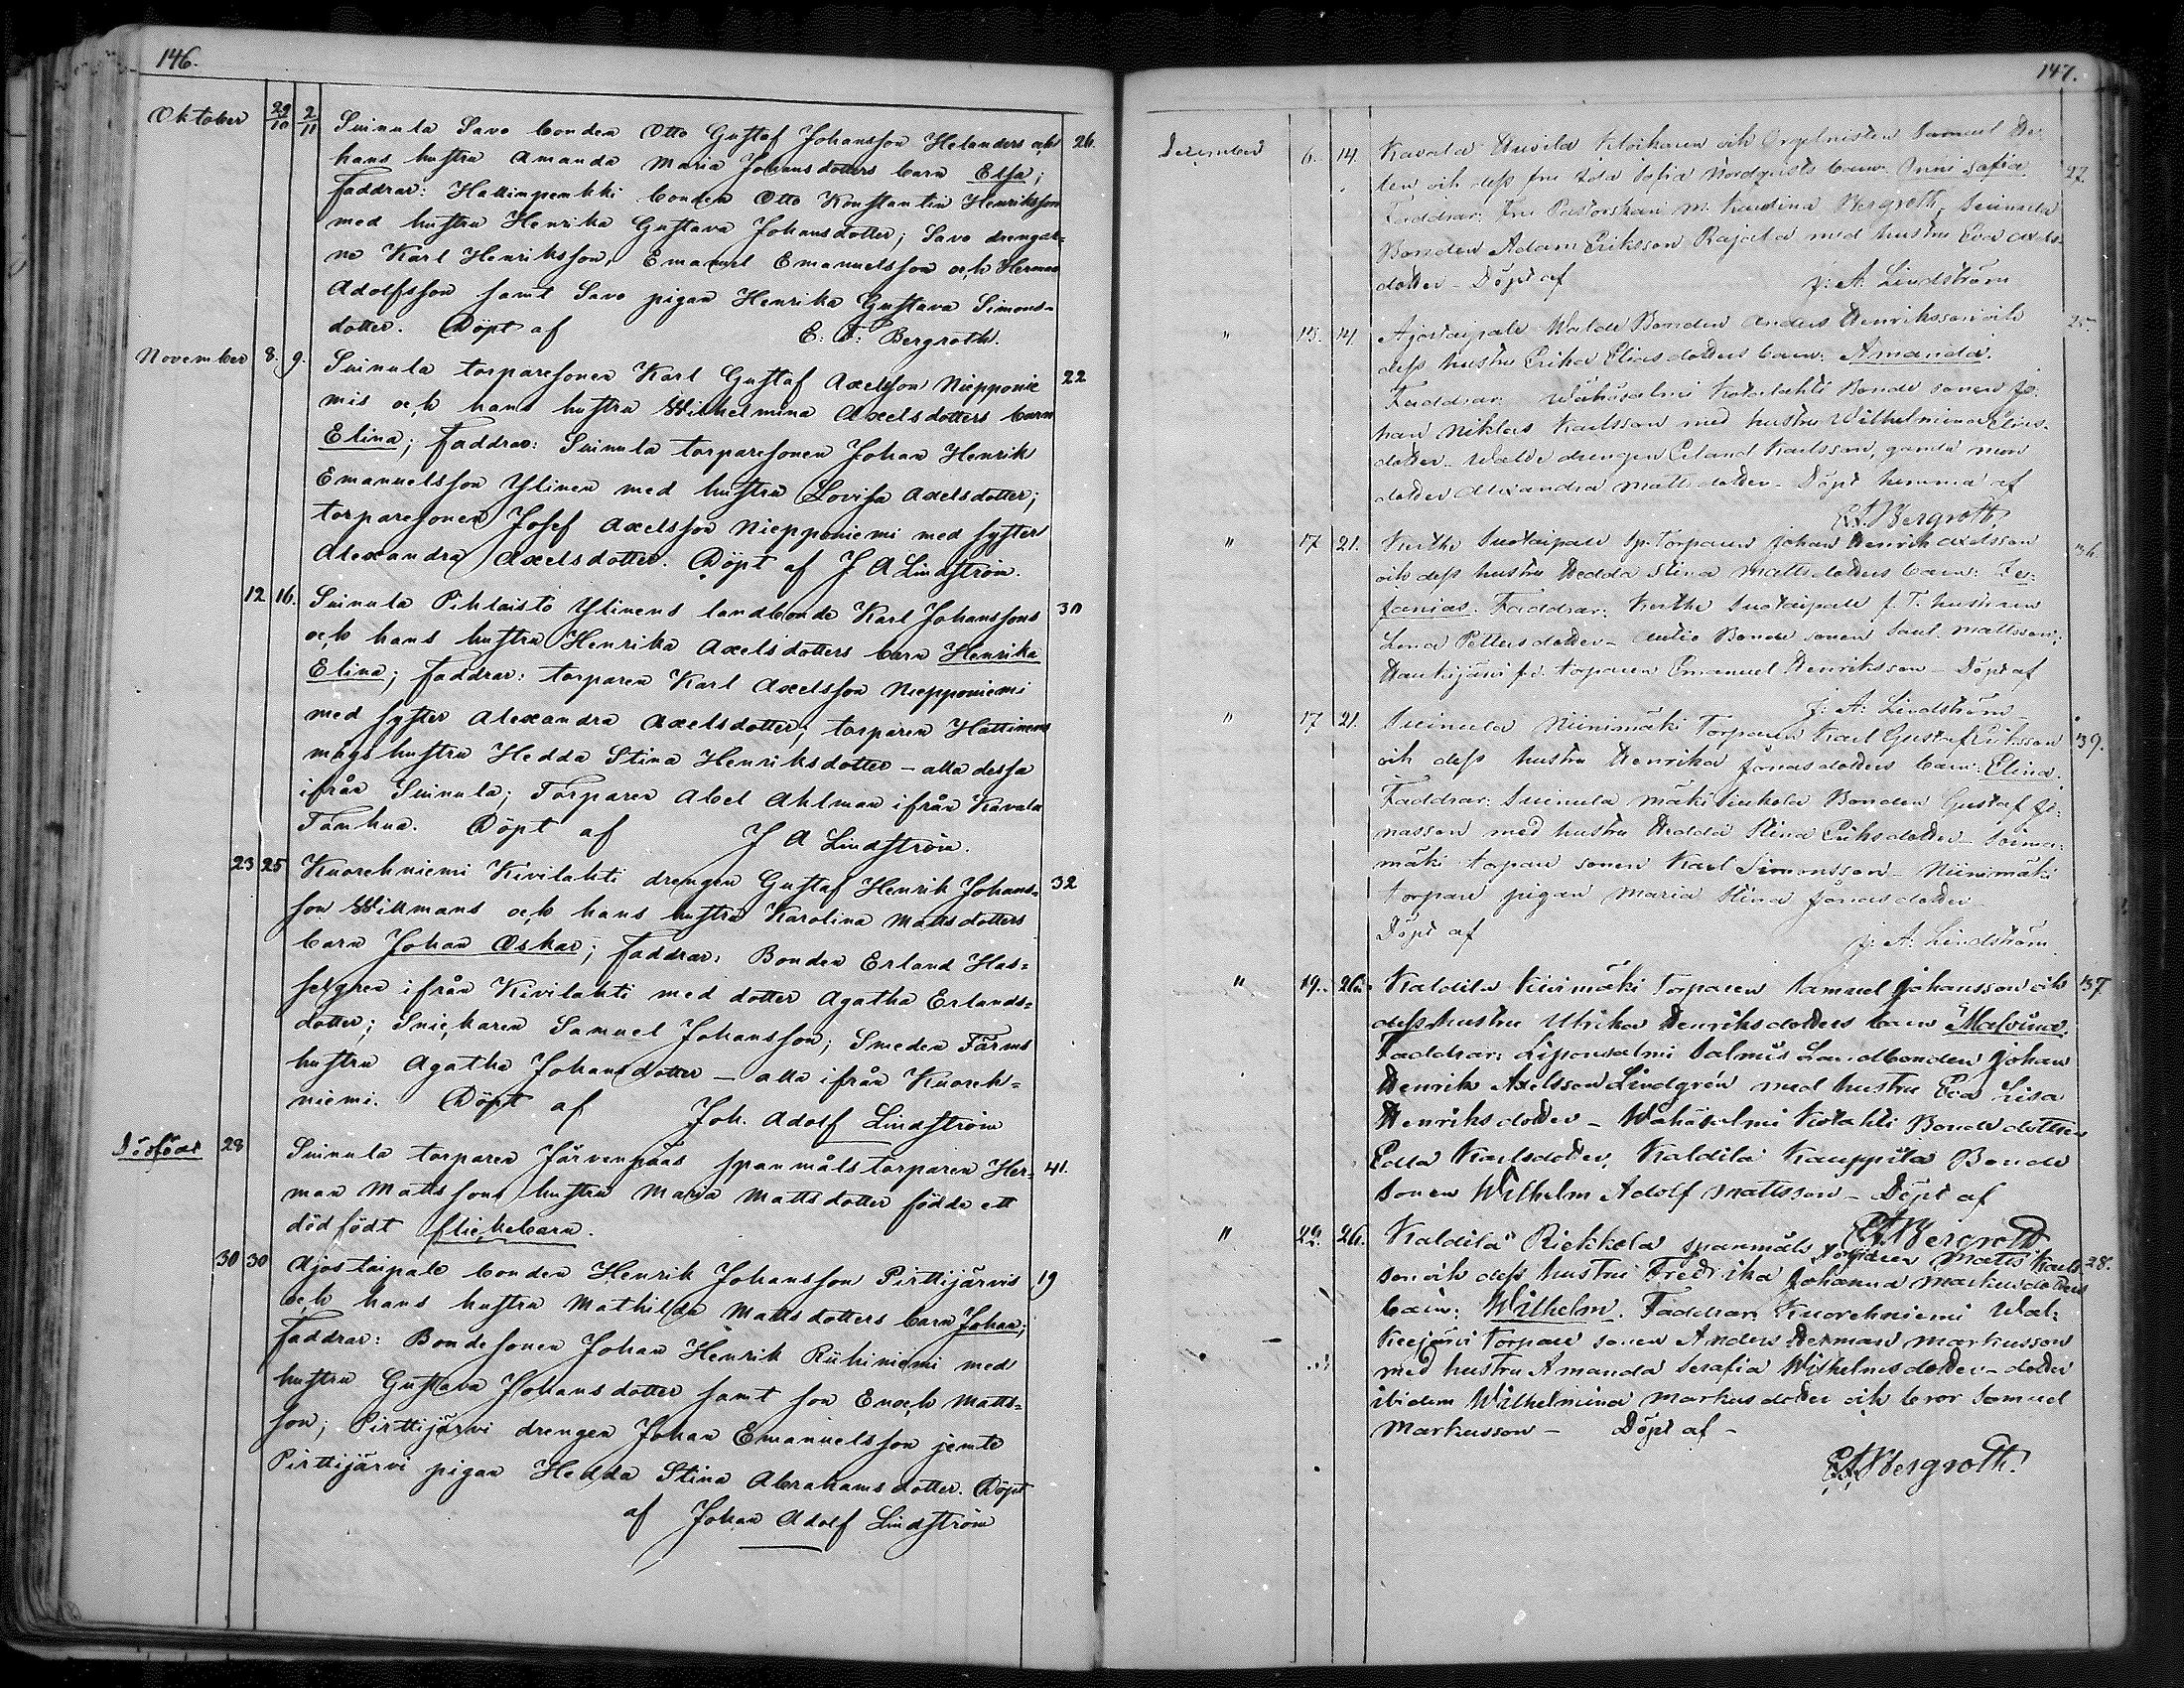 146.
Oktober 29/10 2/11 Suinula Savo bonden Otto Gustaf Johansson Helanders och 26.
hans hustru Amanda Maria Johansdotters barn Elsa;
faddrar: Hallinpenkki bonden Otto Konstantin Henriksson
med hustru Henrika Gustava Johansdotter; Savo drengar-
ne Karl Henriksson, Emanuel Emanuelsson och Herman
Adolfsson samt Savo pigan Henrika Gustava Simons-
dotter. Döpt af E. A. Bergroth.
November 8. 9. Suinula torparesonen Karl Gustaf Axelsson Niepponie 22
mis och hans hustru Wilhelmina Axelsdotters barn
Elina; faddrar: Suinula torparesonen Johan Henrik
Emanuelsson Ylinen med hustru Lovisa Axelsdotter;
torparesonen Josef Axelsson Niepponiemi med syster
Alexandra Axelsdotter. Döpt af J A Lindström.
12 16. Suinula Pihlaisto Ylinens landbonde Karl Johanssons 30
och hans hustru Henrika Axelsdotters barn Henrika
Elina; faddrar: torparen Karl Axelsson Niepponiemi
med syster Alexandra Axelsdotter; torparen Hattinens
mågs hustru Hedda Stina Henriksdotter – alla dessa
ifrån Suinula; Torparen Abel Ahlman ifrån Kavala
Döpt af J A Lindström.
23 25 Kuorehniemi Kivilahti drengen Gustaf Henrik Johans= 32
son Willmans och hans hustru Karolina Mattsdotters
barn Johan Oskar; faddrar: Bonden Erland Has=
selgren ifrån Kivilahti med dotter Agatha Erlands=
dotter; Snickaren Samuel Johansson; Smeden Färms
hustru Agatha Johansdotter – alla ifrån Kuoreh=
niemi. Döpt af Joh. Adolf Lindström
Dödföde 28 Suinula torparen Järvenpääs spanmålstorparen Her- 41.
man Mattssons hustru Maria Mattsdotter födde ett
dödfödt flickebarn.
30 30 Ajostaipale bonden Henrik Johansson Pirttijärvis 19
och hans hustru Mathilda Mattsdotters barn Johan;
faddrar: Bondesonen Johan Henrik Riihiniemi med
hustru Gustava Johansdotter samt son Enoch Matts=
son; Pirttijärvi drengen Johan Emanuelsson jemte
Pirttijärvi pigan Hedda Stina Abrahamsdotter. Döpt
af Johan Adolf Lindström
147.
December 6. 14. Kavala Klockaren och Orgelnisten Samuel 27.
och dess fru Ida Sofia Nordqvists barn: Sofia
Faddrar: Fru Pastorskan Bergroth, Suinula
Bonden Adam Eriksson Rajala med hustru Eva Axels-
dotter – Döpt af J. A. Lindström
" 13. 14 Ajostaipale Bonden Anders Henriksson och 25.
dess hustru Erika Eliasdotters barn: Amanda.
Faddrar: Wähäsalmi Kotalahti Bonde sonen Jo:
han Niklas Karlsson med hustru Wilhelmina Elias-
dotter – drengen Erland Karlsson, gamla
dotter Alexandra Mattsdotter – Döpt hemma af
E. A. Bergroth.
" 17 21. Suotaipale Sp. Torparen Johan Henrik Axelsson 36.
och dess hustru Hedda Stina Mattsdotters barn: Ze:
fanias. Faddrar: Suotaipale hustrun
Lena Pettersdotter – Bonde sonen Mattsson;
Haukijärvi f.d. torparen Emanuel Henriksson – Döpt af
J: A: Lindström
" 17 21. Suinula Niinimäki Torparen Karl Gustaf Eriksson 39.
och dess hustru Henrika Jonasdotters barn: Elina.
Faddrar: Suinula Mäki Bonden Gustaf Jo:
nasson med hustru Hedda Stina Eriksdotter –
mäki torpare sonen Karl Simonsson – Niinimäki
torpare pigan Maria Stina Jonasdotter
Döpt af J: A: Lindström
" 19. 26. Kaldila Kivimäki Torparen Samuel Johansson och 37
dess hustru Ulrika Henriksdotters barn Malvina.
Faddrar: Liponsalmi Salmis Landbonden Johan
Henrik Axelsson Lindgrén med hustru Eva Lisa
Henriksdotter – Wähäsalmi Kotalahti Bonde dottren
Edla Karlsdotter, Kaldila Kauppila Bonde
sonen Wilhelm Adolf Mattsson – Döpt af
E. A. Bergroth
" 22. 26. Kaldila Riekkola spanmåls torparen Matts Karls 28.
son och dess hustru Fredrika Johanna Markusdotters
barn: Wilhelm. Faddrar: Kuorehniemi Wal:
keejärvi Torpare sonen Anders Herman Markusson
med hustru Amanda Serafia Wilhelmsdotter – dotter
ibidem Wilhelmina Markusdotter och bror Samuel
Markusson – Döpt af –
E. A. Bergroth.